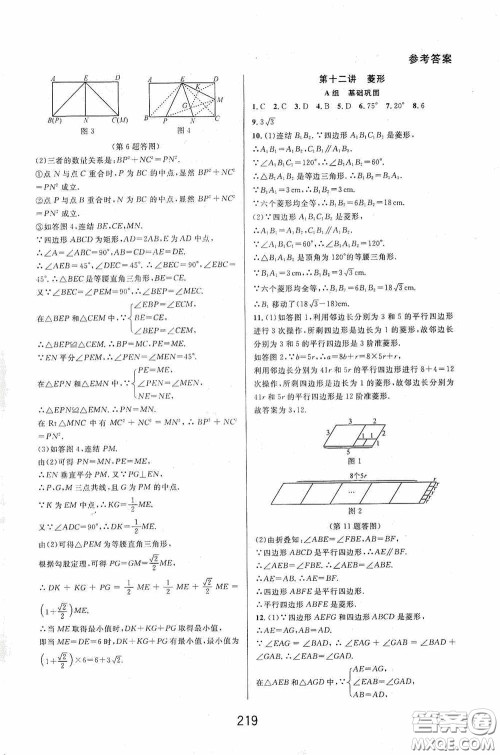 参考答案
A E D
B(P) N C(M)
图 3
A E D
K G M
B P N C
图 4
(第 6 题答图)
(2)三者的数量关系是:BP²+NC²=PN².
①点 N 与点 C 重合时,P 为 BC 的中点,显然 BP²+NC²
=PN² 成立.
②点 P 与点 B 重合时,N 为 BC 的中点,显然 BP²+NC²
=PN² 成立.
③如答图 4,连结 BE,CE,MN.
∵四边形 ABCD 为矩形,AD=2AB,E 为 AD 的中点,
∴∠A=∠ABC=90°,AB=CD=AE=DE.
∴∠AEB=45°,∠DEC=45°.
∴∠BEC=90°,BE=CE.∠EBC=45°.
∴△BEC 是等腰直角三角形,BE=CE.
又∵∠BEC=∠PEM=90°,∴∠BEP=∠MEC.
在△BEP 和△CEM 中,
∠EBP=∠ECM,
BE=CE,
∠BEP=∠CEM,
∴△BEP≌△CEM(ASA).∴BP=MC,PE=ME.
又∵EN 平分∠PEM,∴∠PEN=∠MEN=45°.
在△EPN 和△EMN 中,
PE=ME,
∠PEN=∠MEN,
NE=NE,
∴△EPN≌△EMN(SAS).∴PN=MN.
在 Rt△MNC 中有 MC²+NC²=MN²,∴BP²+NC²
=PN².
(3)如答图 4,连结 PM.
由(2)可得 PN=MN,PE=ME,
∴EN 垂直平分 PM.又∵PG⊥EN,
∴P,G,M 三点共线,且 G 为 PM 的中点.
∵K 为 EM 中点,∴KG=1/2 ME.
又∵∠ADC=90°,∴DK=1/2 ME.
由(2)可得△PEM 为等腰直角三角形,
根据勾股定理,可得 PG=GM=√2/2 ME,
∴DK+KG+PG=1/2 ME+1/2 ME+√2/2 ME=
(1+√2/2)ME.
∴当 ME 取得最小值时,DK+KG+PG 取得最小值,
即当 ME=DE 时,DK+KG+PG 有最小值,最小值为
(1+√2/2)×6=6+3√2.
第十二讲 菱形
A 组 基础巩固
1.C 2.C 3.D 4.B 5.D 6.75° 7.20° 8.6
9.3√3
10.(1)连结 B₁B₂.∵四边形 A₁B₁C₁B₂ 是菱形,
∴A₁B₁=A₁B₂.
∵∠A₁B₁C₁=120°,∴∠A₁B₁B₂=60°.
∴△B₁A₁B₂ 是等边三角形.
∵B₁A₁=3 cm,∴B₁B₂=3 cm.
∵六个菱形均全等,∴B₁B₂=6B₁B₂=18 cm.
(2)∵四边形 A₁B₁C₁B₂ 是菱形,
∴A₁B₁=A₁B₂.
∵∠A₁B₁C₁=60°,∴∠B₁A₁B₂=120°.
∴△B₁A₁B₂ 是顶角为 120°的等腰三角形.
∵B₁A₁=3 cm,∴B₁B₂=3√3 cm.
∵六个菱形均全等,∴B₁B₂=6B₁B₂=18√3 cm.
11.(1)如答图 1,利用邻边长分别为 3 和 5 的平行四边形
进行 3 次操作,所剩四边形是边长为 1 的菱形,故邻边长
分别为 3 和 5 的平行四边形是 3 阶准菱形.
如答图 2,∵b=5r,∴a=8b+r=8×5r+r=41r.
利用邻边长分别为 41r 和 5r 的平行四边形进行 8+4=12
次操作,所剩四边形是边长为 r 的菱形,故邻边长分别为
41r 和 5r 的平行四边形是 12 阶准菱形.
故答案为 3,12.
3 2
1
3
5
图 1
8个5r
…
图 2
(第 11 题答图)
(2)由折叠知,∠ABE=∠FBE,AB=BF.
∵四边形 ABCD 是平行四边形,∴AE∥BF.
∴∠AEB=∠FBE.∴∠AEB=∠ABE.
∴AE=AB.∴AE=BF.
∴四边形 ABFE 是平行四边形.
∴平行四边形 ABFE 是菱形.
12.(1)∵四边形 AEFG 和四边形 ABCD 是菱形,
∴AE=AG,AB=AD.
又∵∠EAG=∠BAD,∴∠EAG+∠GAB=∠BAD+
∠GAB,∴∠EAB=∠GAD.
在△AEB 和△AGD 中,
AE=AG,
∠EAB=∠GAD,
AB=AD,
219
答案圈
MXQE.COM